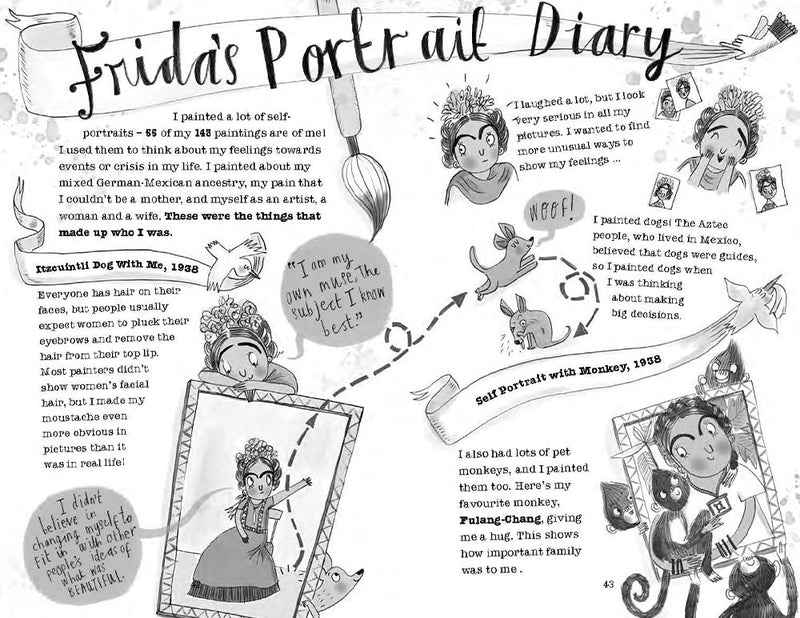 Frida's Portrait Diary
I painted a lot of self-
portraits – 55 of my 143 paintings are of me!
I used them to think about my feelings towards
events or crisis in my life. I painted about my
mixed German-Mexican ancestry, my pain that
I couldn't be a mother, and myself as an artist, a
woman and a wife. These were the things that
made up who I was.
Itzcuintli Dog With Me, 1938
Everyone has hair on their
faces, but people usually
expect women to pluck their
eyebrows and remove the
hair from their top lip.
Most painters didn't
show women's facial
hair, but I made my
moustache even
more obvious in
pictures than it
was in real life!
"I am my
own muse, The
subject I know
best."
I didn't
believe in
changing myself to
fit in with other
people's ideas of
what was
BEAUTIFUL.
I laughed a lot, but I look
very serious in all my
pictures. I wanted to find
more unusual ways to
show my feelings ...
WOOF!
I painted dogs! The Aztec
people, who lived in Mexico,
believed that dogs were guides,
so I painted dogs when
I was thinking
about making
big decisions.
Self Portrait with Monkey, 1938
I also had lots of pet
monkeys, and I painted
them too. Here's my
favourite monkey,
Fulang-Chang, giving
me a hug. This shows
how important family
was to me.
43